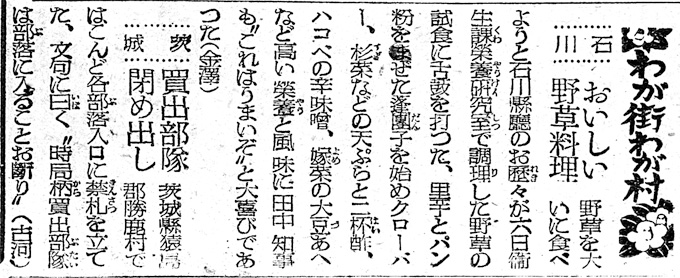 わが街わが村
石川
おいしい
野草料理
野草を大
いに食べ
ようと石川縣廳のお歷々が六日衞
生課榮養研究室で調理した野草の
試食に舌鼓を打つた、里芋とパン
粉をまぜた蓬團子を始めクローバ
ー、杉菜などの天ぷらと二杯酢、
ハコベの辛味噌、嫁菜の大豆あへ
など高い榮養と風味に田中知事
も〝これはうまいぞ〟と大喜びであ
つた(金澤)
茨城
買出部隊
閉め出し
茨城縣猿島
郡勝鹿村で
はこんど各部落入口に禁札を立て
た、文句に曰く〝時局柄買出部隊
は部落に入ることお斷り〟(古河)